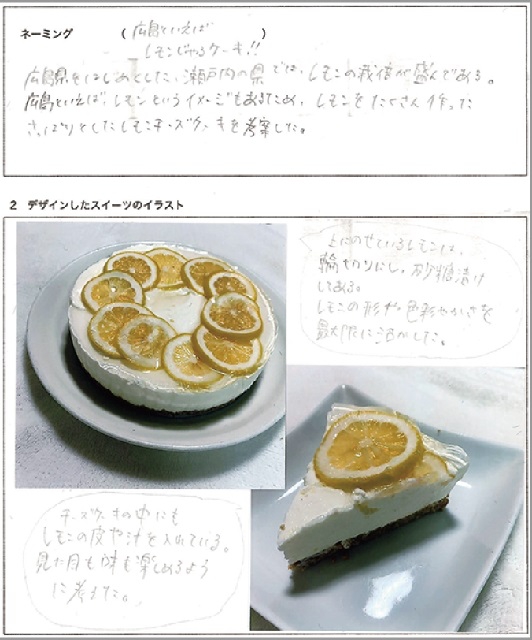 ネーミング （広島といえば
レモンじゃろケーキ!!）
広島県をはじめとした、瀬戸内の県では、レモンの栽培が盛んである。
広島といえば、レモンというイメージもあるため、レモンをたくさん使った
さっぱりとしたレモンチーズケーキを考案した。
2 デザインしたスイーツのイラスト
上にのせているレモンは、
輪切りにし、砂糖漬け
してある。
レモンの形や色彩やかさを
最大限に活かした。
チーズケーキの中にも
レモンの皮や汁を入れている。
見た目も味も楽しめるよう
に考えた。